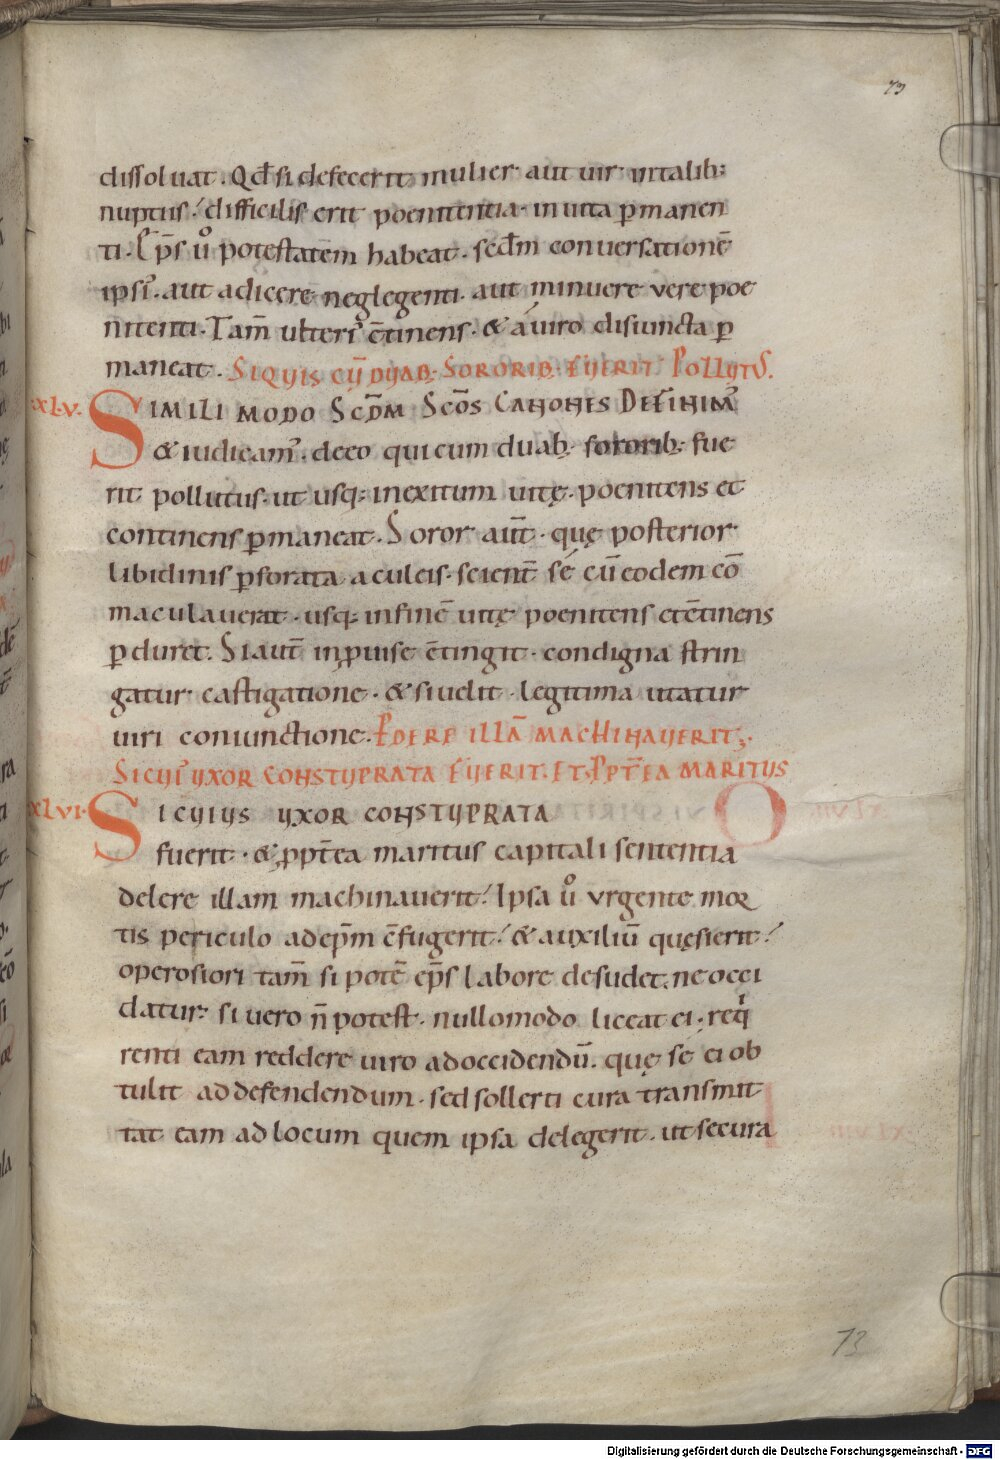 73
dissoluat. Qđ si defecerit mulier aut uir in talib;
nuptiis! difficilis erit poenitentia. in uita ꝑmanen
ti. Ep̄s ů potestatem habeat. secđm conuersationē
ipsiꝰ. aut adicere neglegenti. aut minuere vere poe
nitenti. Tam̄ ulteriꝰ c̄tinens. & a uiro disiuncta ꝑ
maneat. SI QUIS CŪ DUAB. SORORIB. FUERIT POLLUTUS.
XLV. SIMILI MODO SCĐM SC̄OS CANONES DEFINIMꝰ
& iudicamꝰ. de eo qui cum duab. sororib. fue
rit pollutus. ut usq; in exitum uitę. poenitens et
continens ꝑmaneat. Soror aut̄. quę posterior
libidinis ꝑforata aculeis. scient̄ sé cū eodem cō
maculauerat. usq; in finē uitę poenitens et c̄tinens
ꝑduret. Si aut̄ inꝓuise c̄tingit. condigna strin
gatur castigatione. & si uelit. legitima utatur
uiri coniunctione. PDERE ILLĀ MACHINAUERIT;.
SI CUIꝰ UXOR CONSTUPRATA FUERIT. ET PPT̄EA MARITUS
XLVI. SI CUIUS UXOR CONSTUPRATA
fuerit. & ꝓpt̄ea maritus capitali sententia
delere illam machinauerit! Ipsa ů vrgente mor
tis periculo ad ep̄m c̄fugerit! & auxiliū quęsierit!
operosiori tam̄ si potē ep̄s labore desudet. ne occi
datur. si vero n̄ potest. nullomodo liceat ei. req̇
renti eam reddere uiro ad occidendū. quę se ei ob
tulit ad defendendum. sed sollerti cura transmit
tat eam ad locum quem ipsa delegerit. ut secura
73
Digitalisierung gefördert durch die Deutsche Forschungsgemeinschaft - DFG